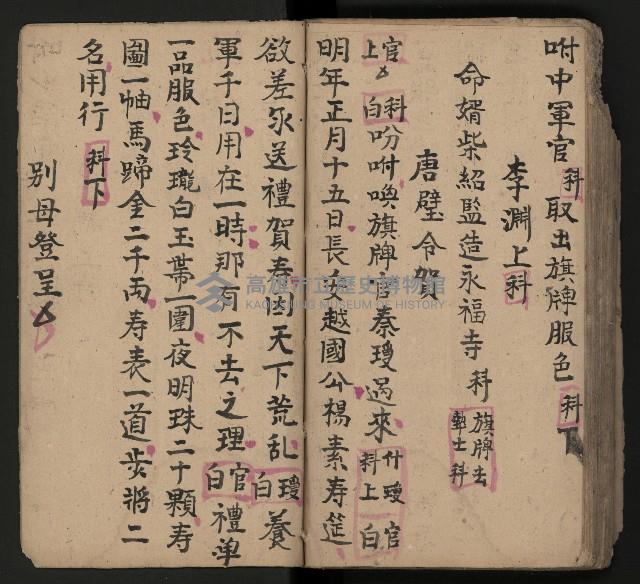 咐中軍官科取出旗牌服色科下
李淵上科
命婿柴紹監造永福寺科旗牌去
科
唐璧令賀
官上白科吩咐喚旗牌官秦瓊過來什瓊官科上白
明年正月十五日長安越國公楊素寿筵
欲差永送禮賀寿因天下荒乱瓊白養
軍千日用在一時那有不去之理官白禮单
一品服色玲瓏白玉帯一圍夜明珠二十顆寿
圖一軸馬蹄金二千両寿表一道步將二
名用行科下
別母登呈
高雄市立歷史博物館
KAOHSIUNG MUSEUM OF HISTORY